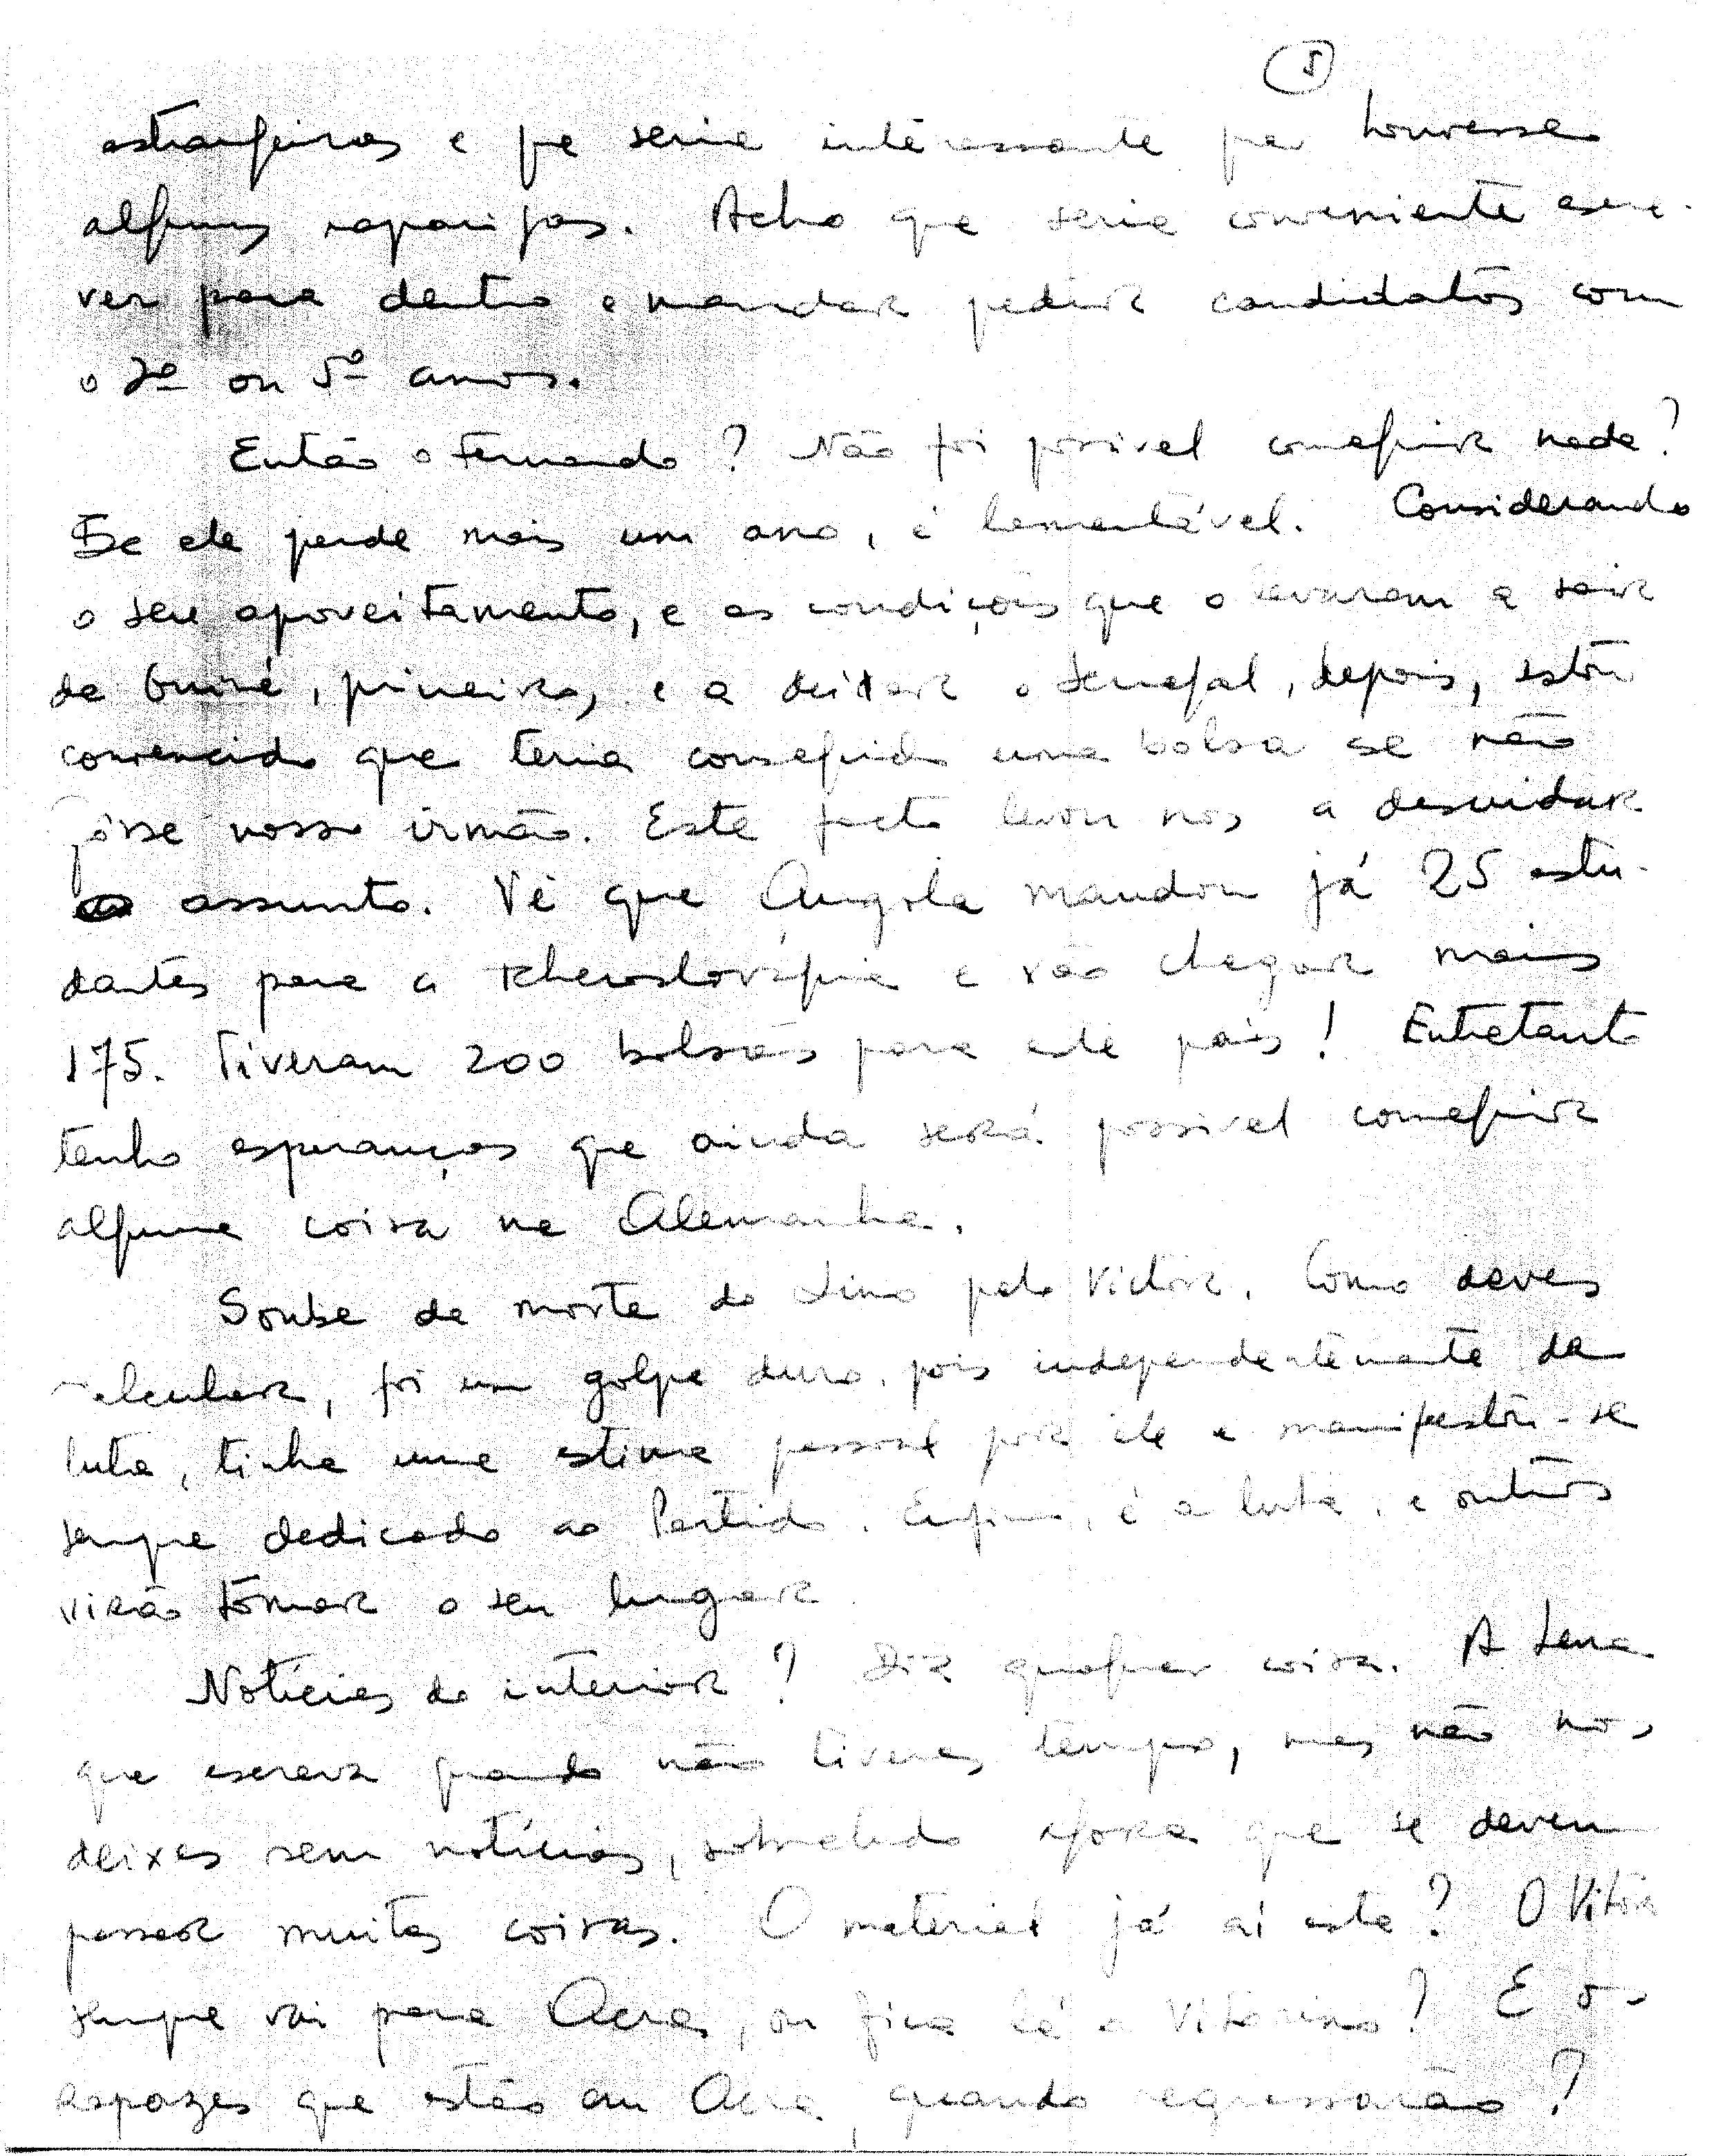 5
estrangeiras e que seria interessante que houvesse
algumas raparigas. Acho que seria conveniente escre-
ver para dentro e mandar pedir candidatos com
o 2º ou 5º anos.
Então o Fernando? Não foi possivel conseguir nada?
Se ele perde mais um ano, é lamentável. Considerando
o seu aproveitamento, e as condições que o levaram a sair
da Guiné, primeiro, e a deixar o Senegal, depois, estou
convencido que teria conseguido uma bolsa se não
fôsse nosso irmão. Este facto levou nos a descuidar
o assunto. Vê que Angola mandou já 25 estu-
dantes para a Tchecoslováquia e vão chegar mais
175. Tiveram 200 bolsas para este país! Entretanto
tenho esperanças que ainda será possivel conseguir
alguma coisa na Alemanha.
Soube da morte do Lino pelo Victor. Como deves
calcular, foi um golpe duro, pois independentemente da
luta, tinha uma estima pessoal por ele e manifestou-se
sempre dedicado ao Partido. Enfim, é a luta, e outros
virão tomar o seu lugar
Notícias do interior? Diz qualquer coisa. A Lena
que escreva quando não tiveres tempo, mas não nos
deixes sem notícias, sobretudo agora que se devem
passar muitas coisas. O material já aí está? O Vitor
sempre vai para Acra, ou fica lá o Vitorino? E os
rapazes que estão em Acra, quando regressarão?